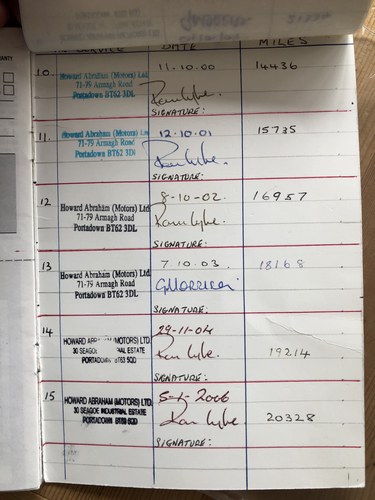 SERVICE DATE MILES
10. Howard Abraham (Motors) Ltd 11.10.00 14436
71-79 Armagh Road
Portadown BT62 3DL
SIGNATURE:
11. Howard Abraham (Motors) Ltd 12.10.01 15735
71-79 Armagh Road
Portadown BT62 3DL
SIGNATURE:
12 8-10-02. 16957
Howard Abraham (Motors) Ltd
71-79 Armagh Road
Portadown BT62 3DL
SIGNATURE:
13 7.10.03. 18168
Howard Abraham (Motors) Ltd
71-79 Armagh Road
Portadown BT62 3DL
SIGNATURE:
14 29-11-04
HOWARD (MOTORS) LTD
30 SEAGOE ESTATE 19214
PORTADOWN BT63 5QD
SIGNATURE:
15 2006
HOWARD ABRAHAM (MOTORS) LTD
30 SEAGOE INDUSTRIAL ESTATE 20328
PORTADOWN BT63 5QD
SIGNATURE: